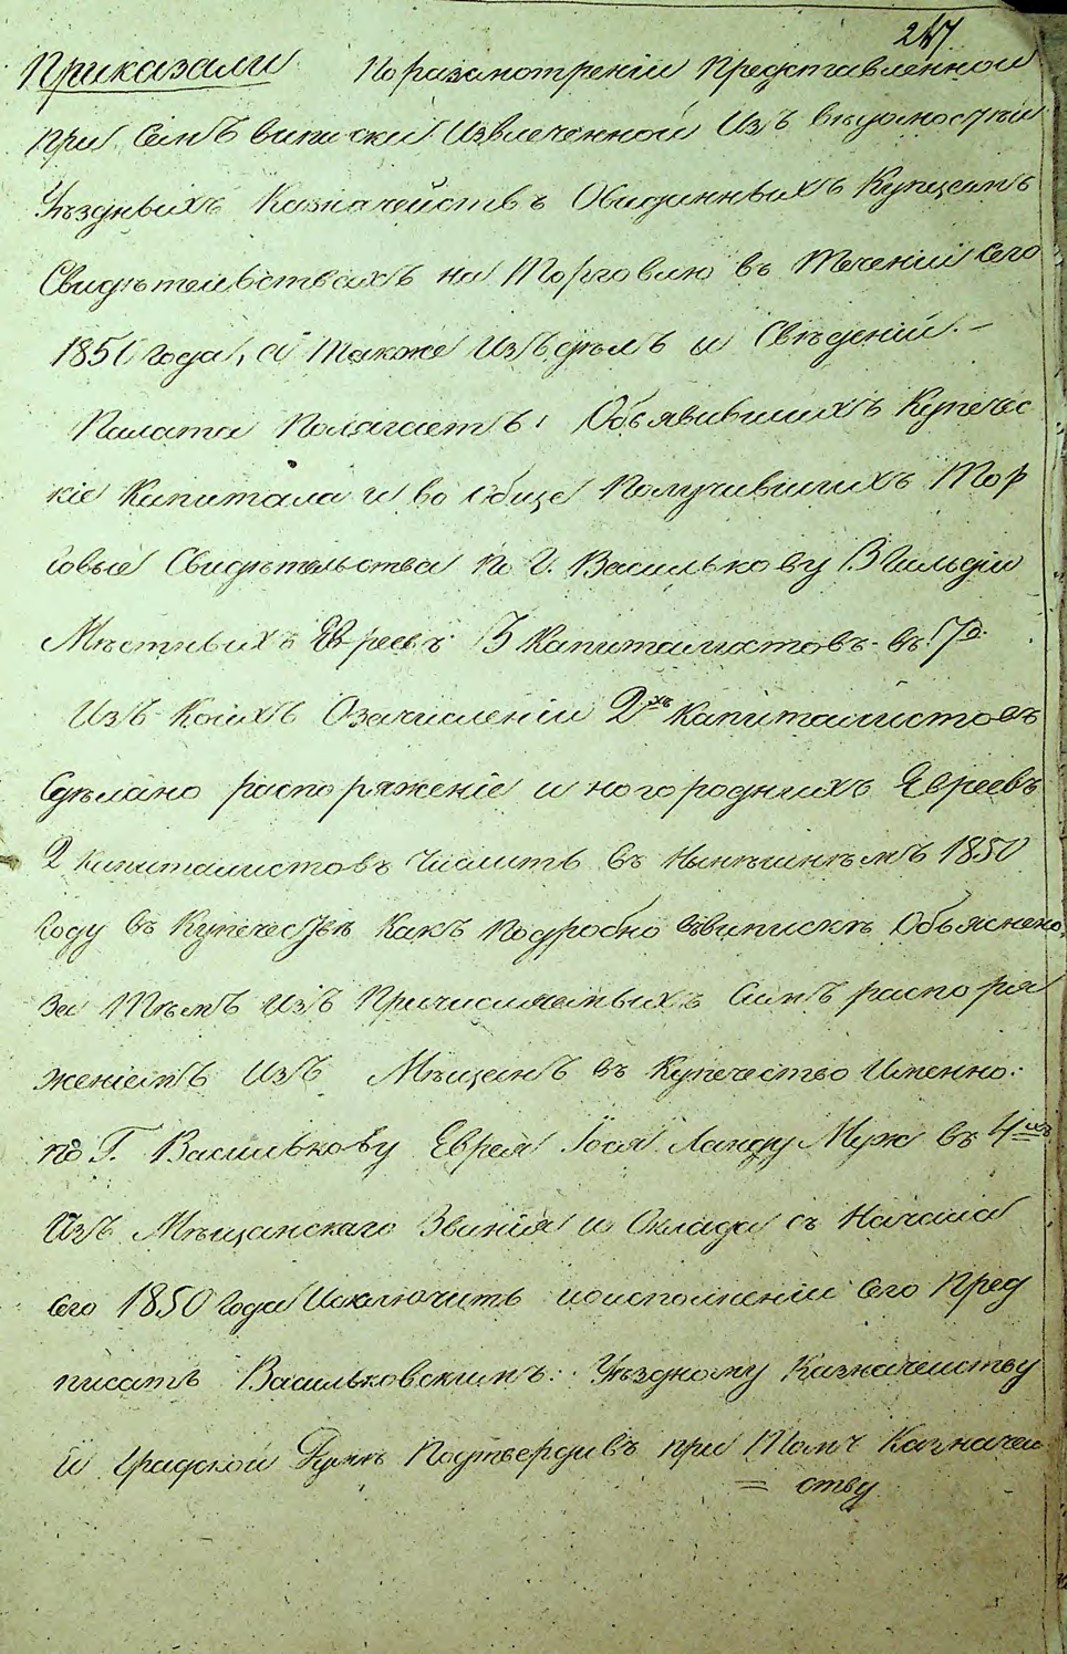 247
Приказали поразсмотреніи Представленной
при семъ выписки Извлеченной Изъ вѣдомостѣй
Уѣздныхъ Казначействъ Овиданныхъ Купцамъ
Свидѣтельствахъ на Торговлю въ Теченіи сего
1850 года, а также Изъ дѣлъ и Свѣденій. —
Палата Полагаетъ: Объявившихъ Купечес
кіе Капитала и во обще Получившихъ Тор
говые Свидѣтельства по Г. Василькову 3 Гильдіи
Мѣстныхъ Евреевъ 3 Капиталистовъ въ
Изъ коихъ Озачисленіи 2хъ Капиталистовъ
Сдѣлано распоряженіе и ногородныхъ Евреевъ
2 капиталистовъ Числить въ Нынѣшнѣмъ 1850
Году въ Купечествѣ Какъ Подробно ввыпискѣ Объяснено,
За Тѣмъ Изъ Причисляемыхъ Симъ распоря
женіемъ Изъ Мѣщанъ въ Купечество Именно:
по Г. Василькову Еврея Іося Ланду Муж въ 4хъ
Изъ Мѣщанскаго Званія и Оклада съ Начала
сего 1850 года Исключить ноисполненіи сего Пред
писать Васильковскимъ: Уѣздному Казначеиству
и Градской Думѣ Подтвердивъ при Томъ Казначеи
= ству